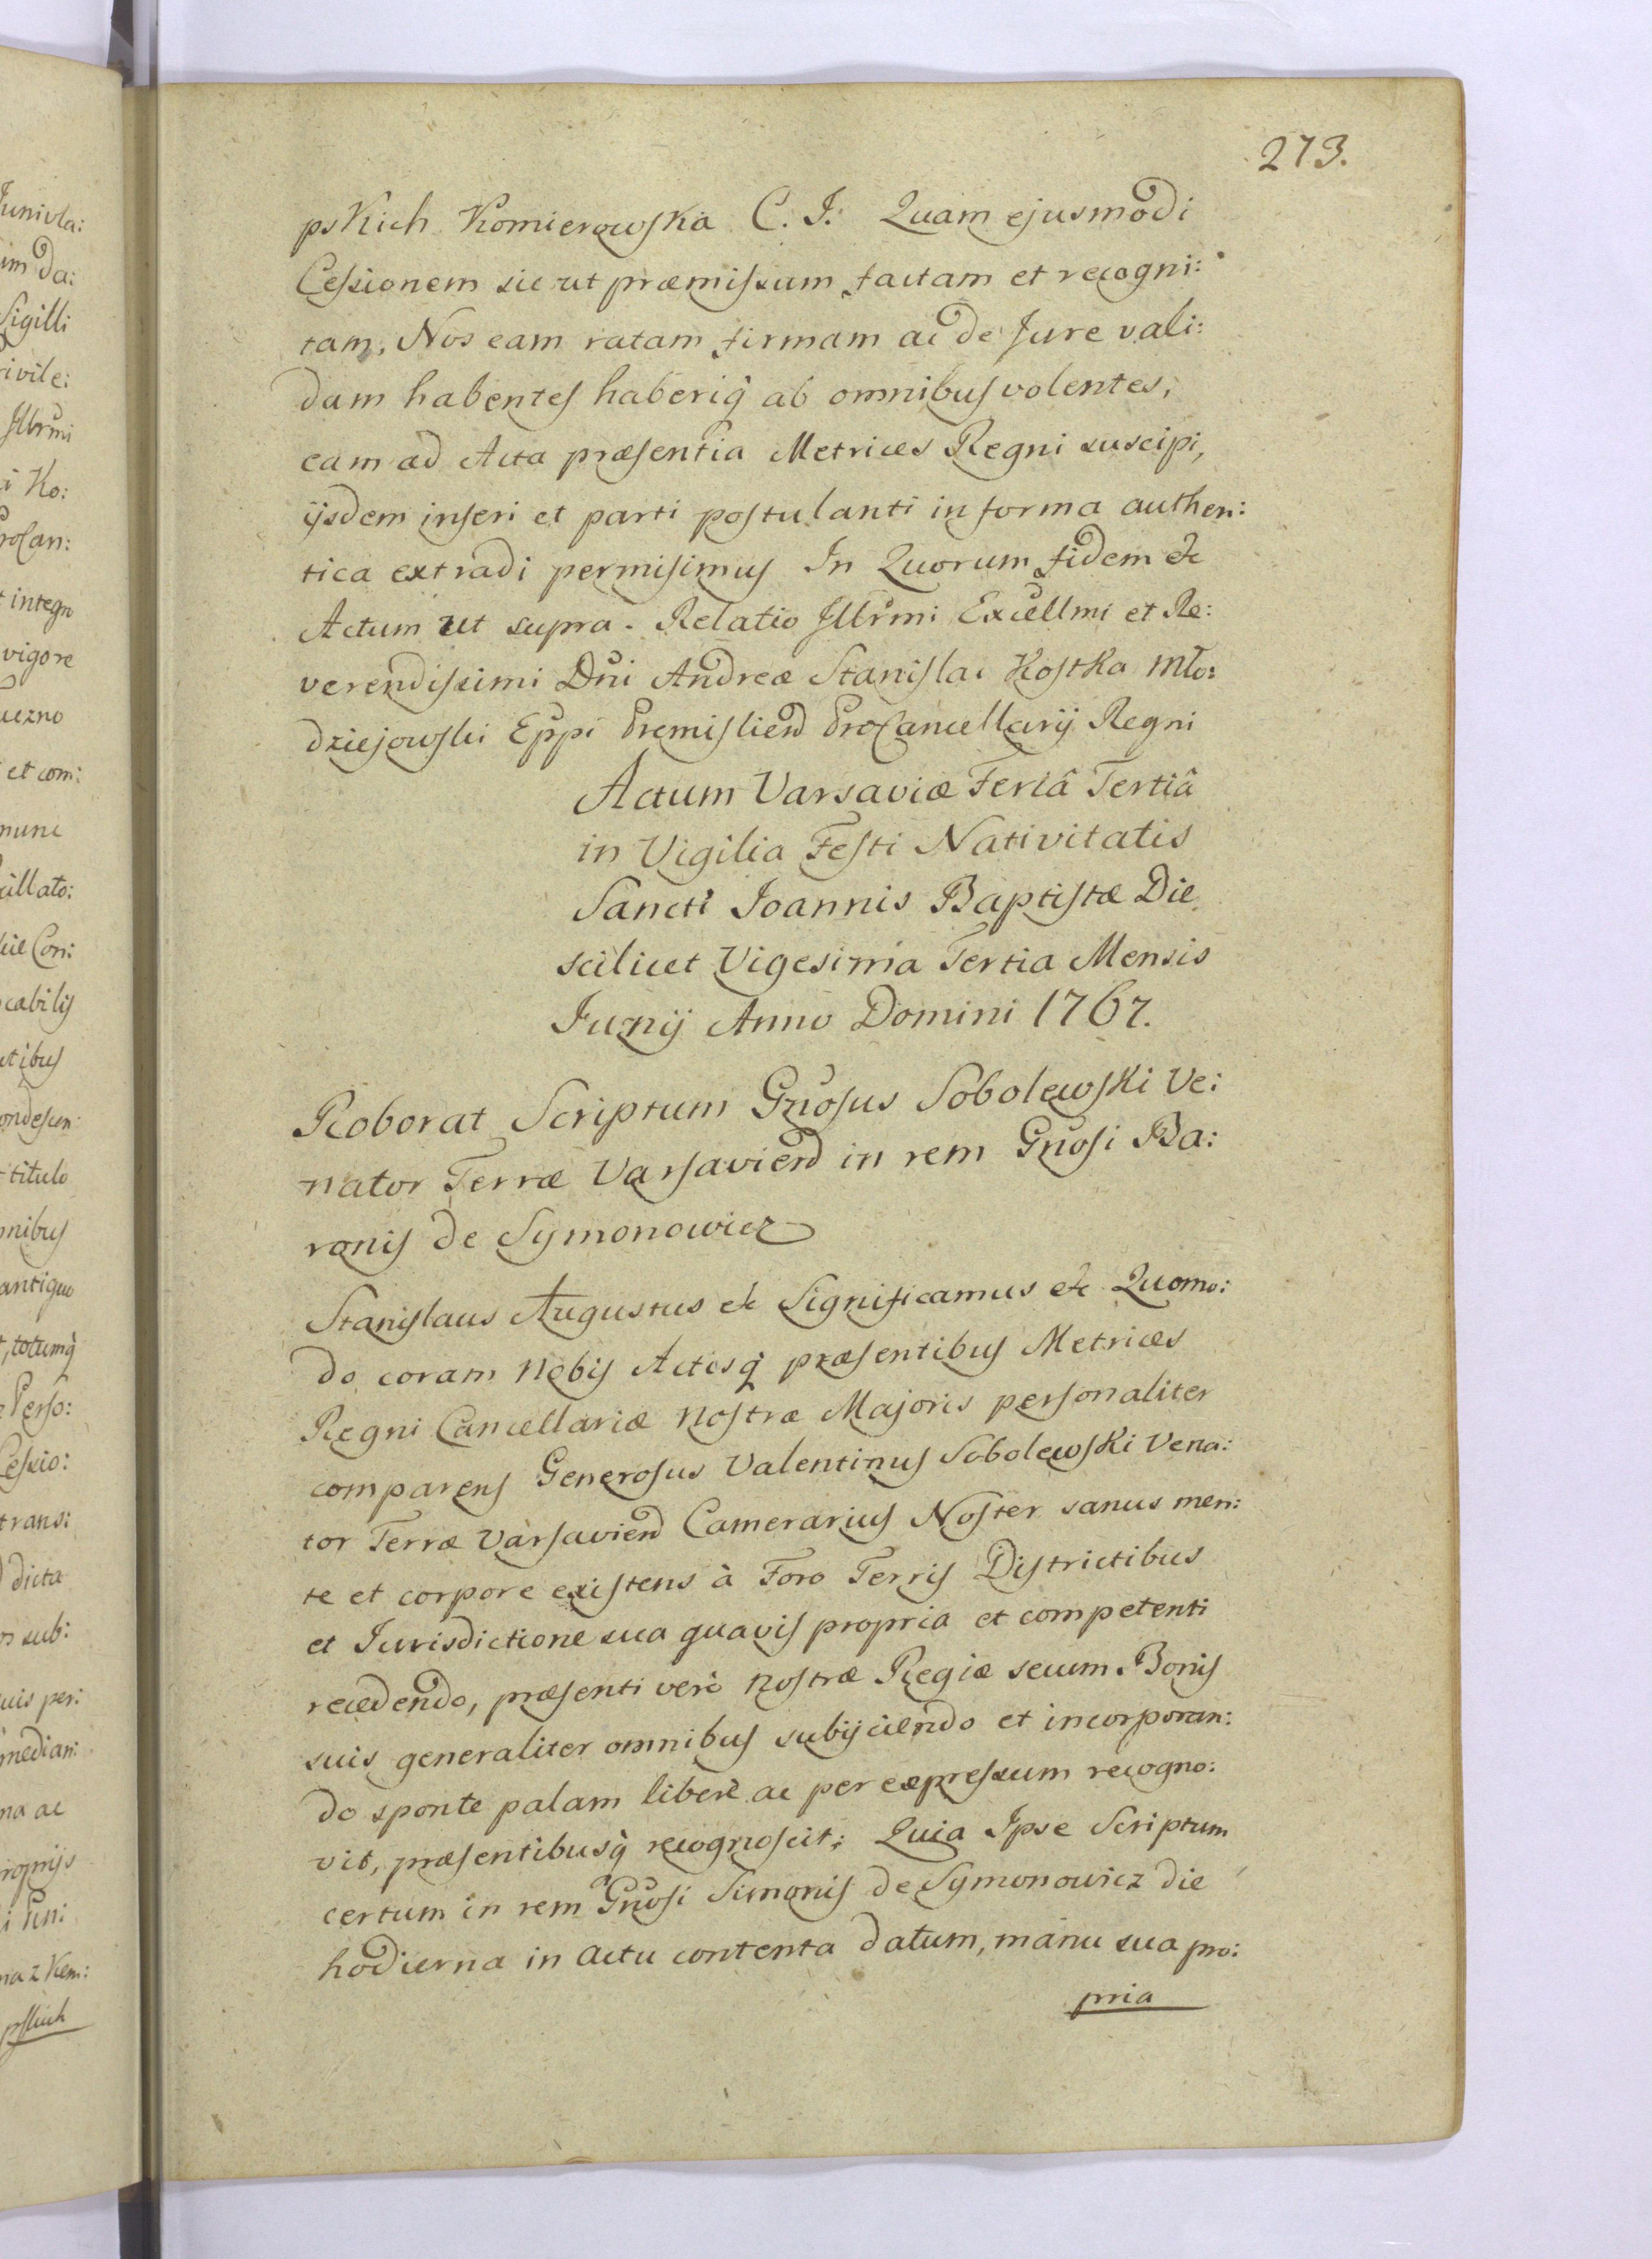 273.
pskich Komierowska C. I. Quam ejusmodi
Cessionem sicut præmissum factam et recogni:
tam, Nos eam ratam firmam ac de Jure vali:
dam habentes haberiq̀ ab omnibus volentes,
eam ad Acta præsentia Metrices Regni suscipi,
ijsdem inseri et parti postulanti in forma authen:
tica extradi permisimus In Quorum fidem etc
Actum ut supra. Relatio Illrmi Excellmi et Re:
verendissimi Dni Andreæ Stanislai Kostka Mło:
dziejowski Eppi Premislien ProCancellarij Regni
Actum Varsaviæ Feriâ Tertiâ
in Vigilia Festi Nativitatis
Sancti Joannis Baptistæ Die
scilicet Vigesima Tertia Mensis
Junij Anno Domini 1767.
Roborat Scriptum Gnosus Sobolewski Ve:
nator Terræ Varsavien in rem Gnosi Ba:
ronis de Symonowicz
Stanislaus Augustus etc Significamus etc Quomo:
do coram Nobis Actisq̀ præsentibus Metrices
Regni Cancellariæ Nostræ Majoris personaliter
comparens Generosus Valentinus Sobolewski Vena:
tor Terræ Varsavien Camerarius Noster sanus men:
te et corpore existens à Foro Terris Districtibus
et Jurisdictione sua quavis propria et competenti
recedendo, præsenti verò Nostræ Regiæ secum Bonis
suis generaliter omnibus subijciendo et incorporan:
do sponte palam liberè ac per expressum recogno:
vit, præsentibusq̀ recognoscit; Quia Ipse Scriptum
certum in rem Gnosi Simonis de Symonowicz die
hodierna in actu contenta datum, manu sua pro:
pria